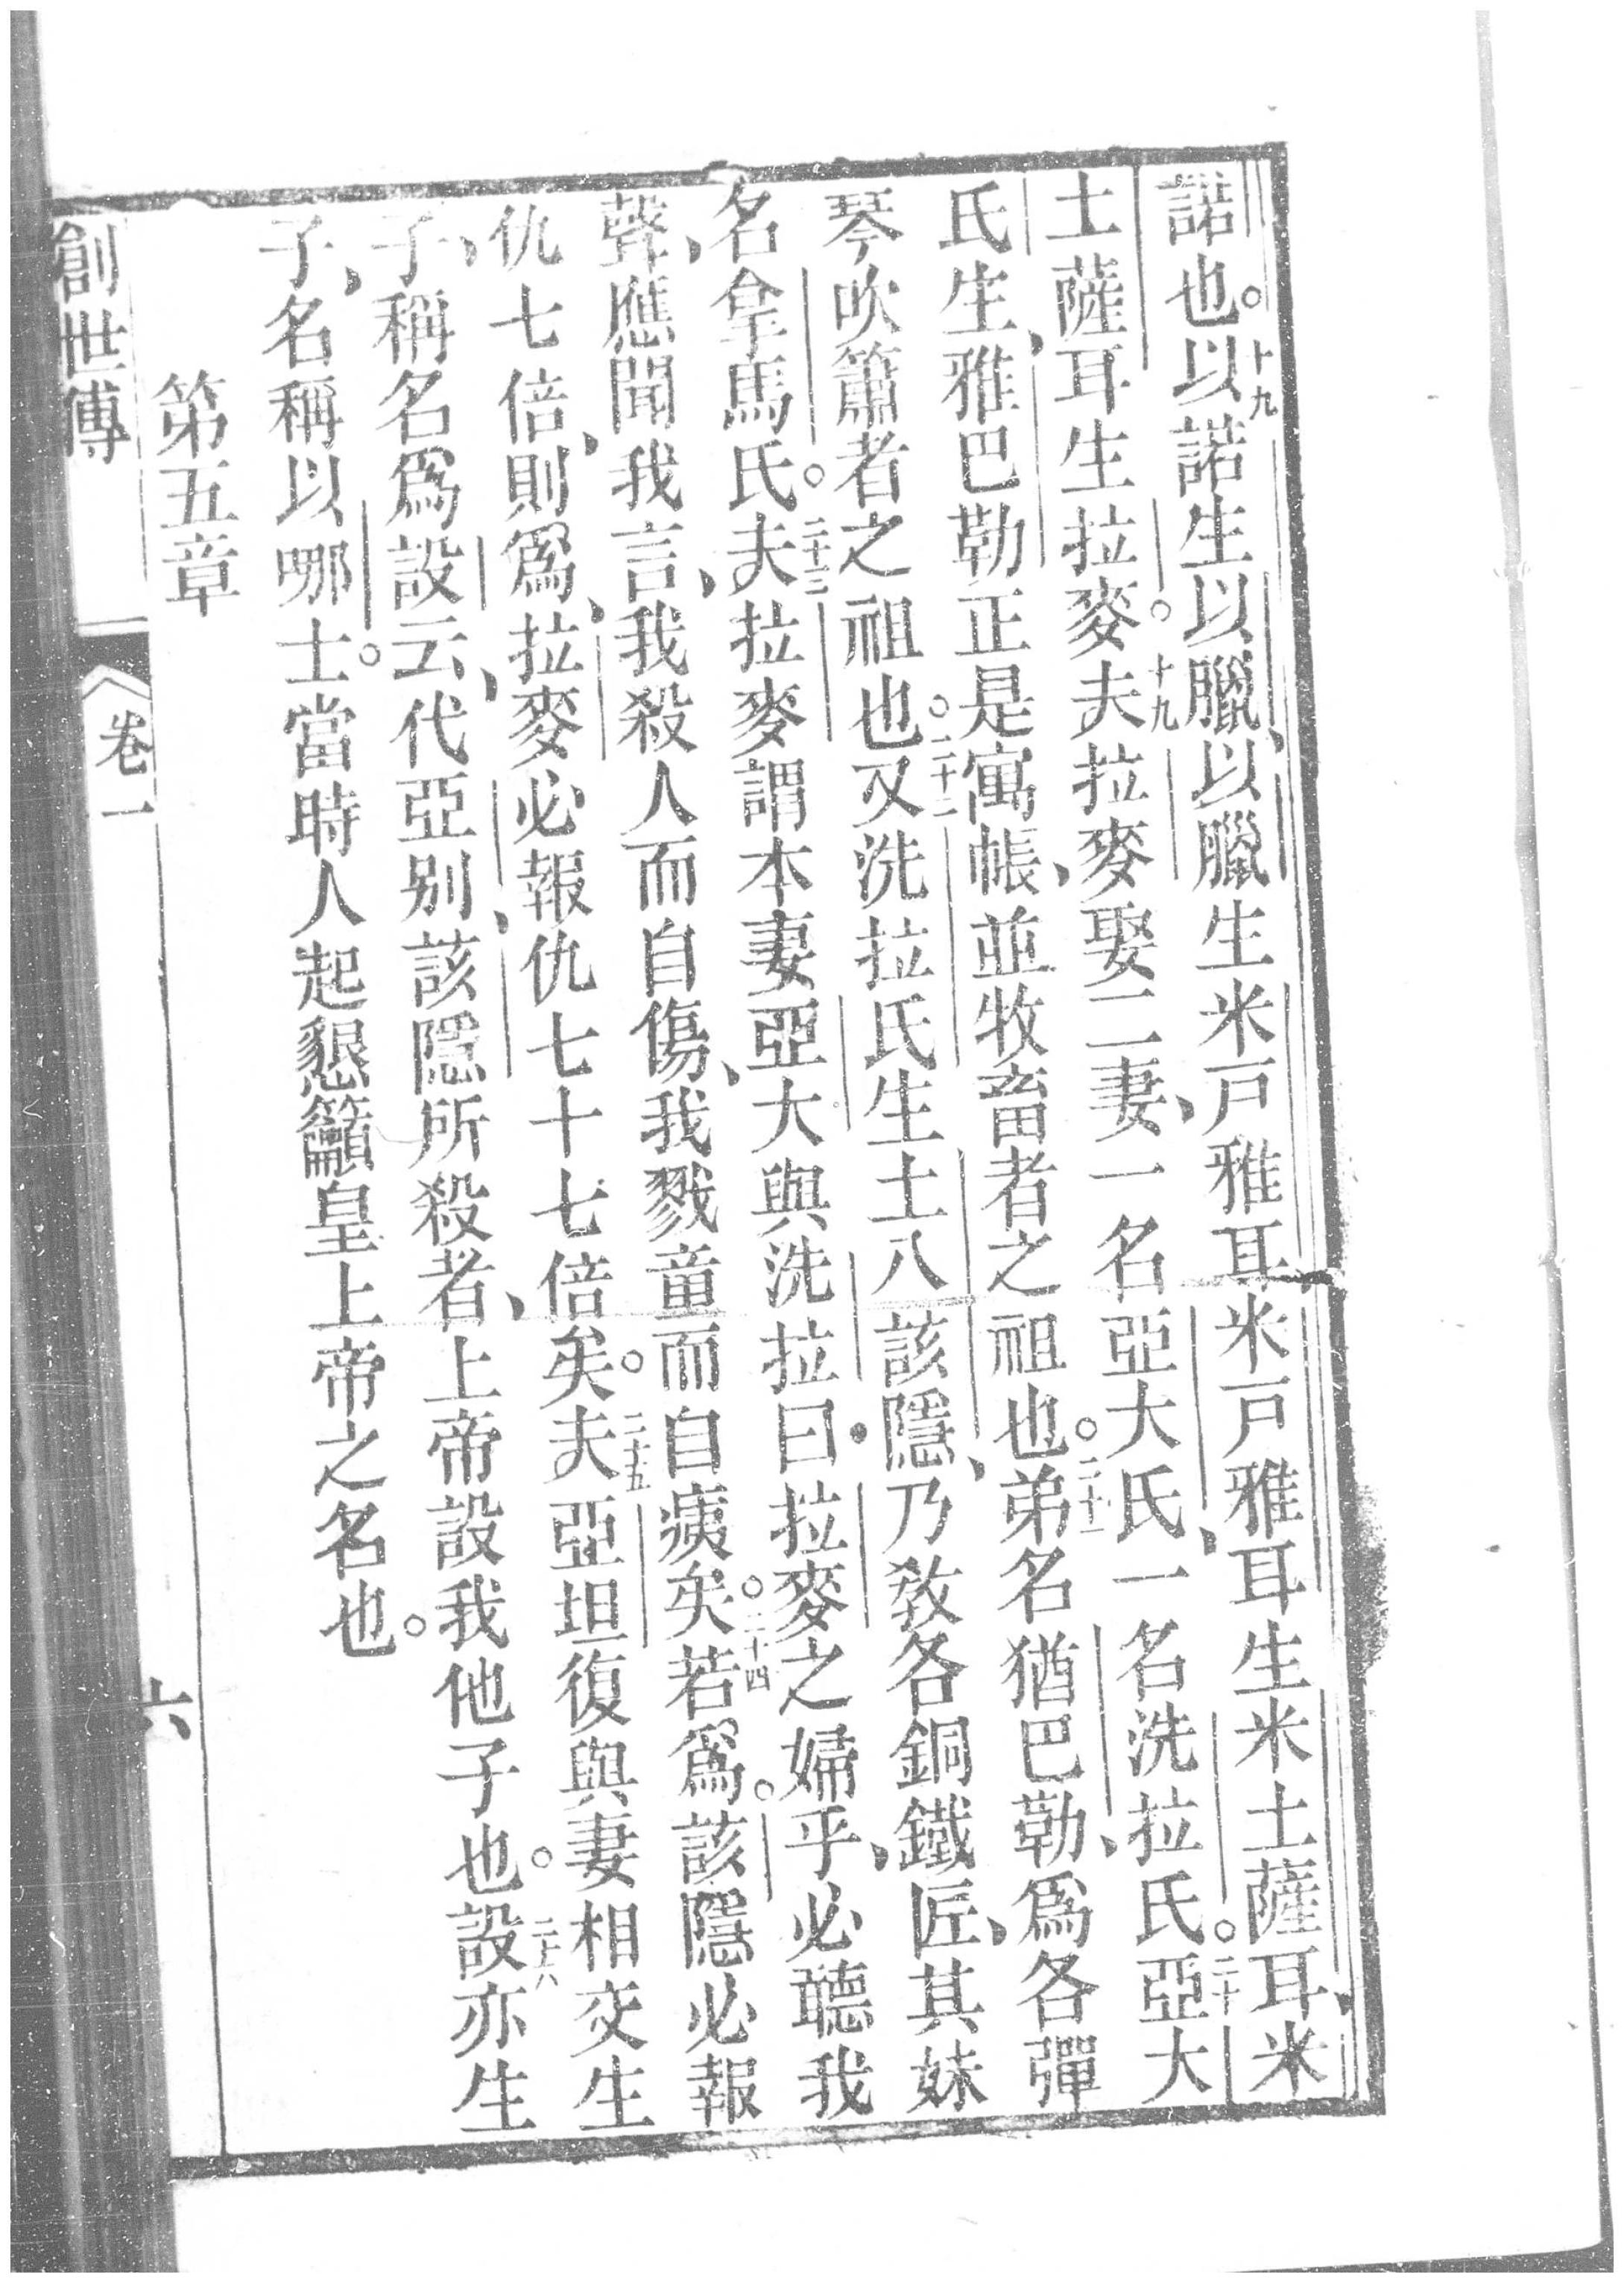 諾也。十九以諾生以臘、以臘生米戸雅耳米戸雅耳生米土薩耳、米
土薩耳生拉麥。十九夫拉麥娶二妻、一名亞大氏、一名洗拉氏。二十亞大
氏生、雅巴勒正是寓帳、並牧畜者之祖也。二十一弟名猶巴勒、爲各彈
琴吹簫者之祖也。二十二又洗拉氏生土八該隱、乃教各銅鐵匠、其妹
名拿馬氏。二十三夫拉麥謂本妻亞大與洗拉曰拉麥之婦乎、必聽我
聲、應聞我言、我殺人而自傷、我戮童而自痍矣。二十四若爲。該隱必報
仇七倍、則爲、拉麥必報仇七十七倍矣。二十五夫亞坦復與妻相交生
子、稱名爲設云、代亞別、該隱所殺者、上帝設我他子也。二十六設亦生
子、名稱以哪士。當時人起懇籲皇上帝之名也。
第五章
創世傳 卷一 六